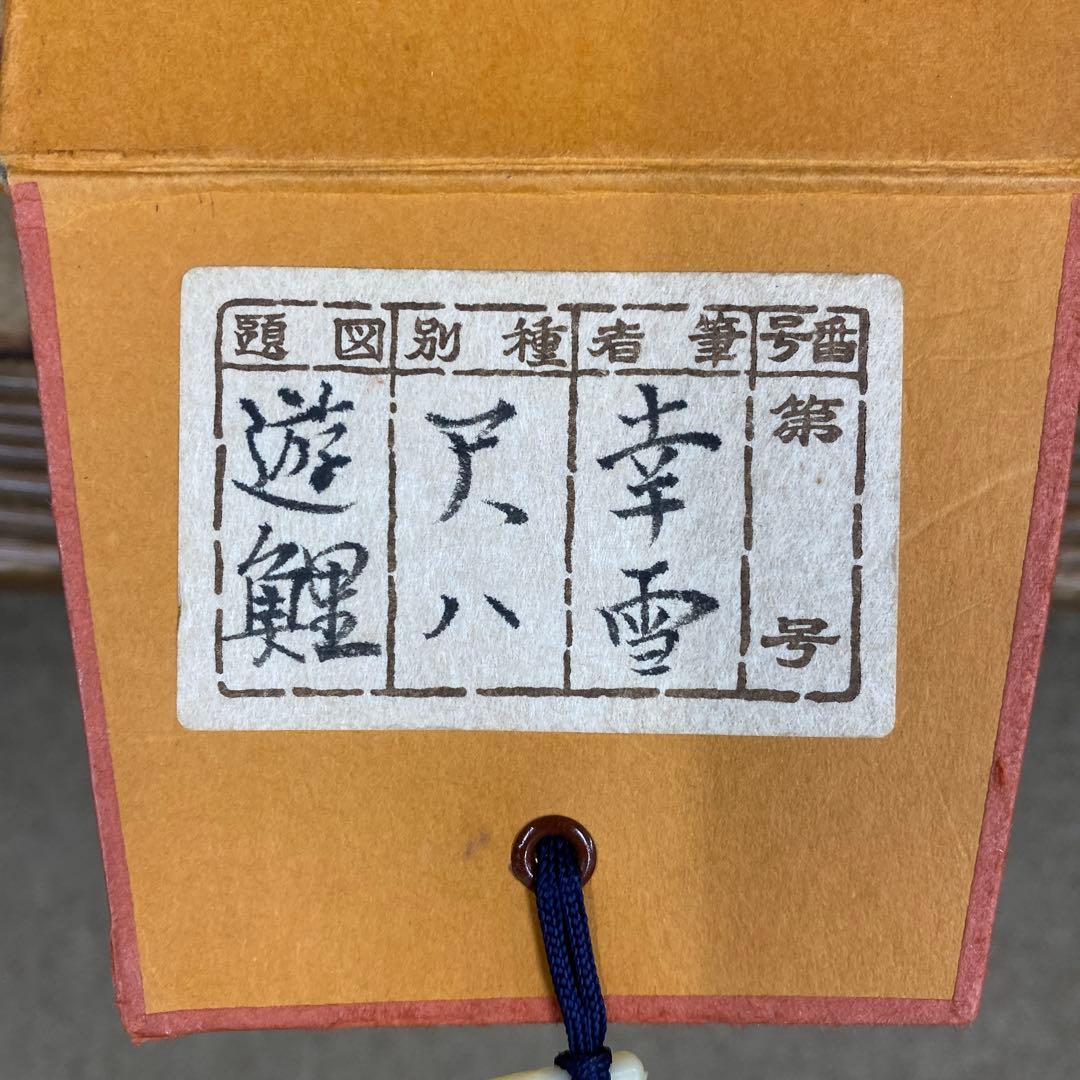 番号
第 号
筆者
幸雪
種別
尺八
図題
遊鯉